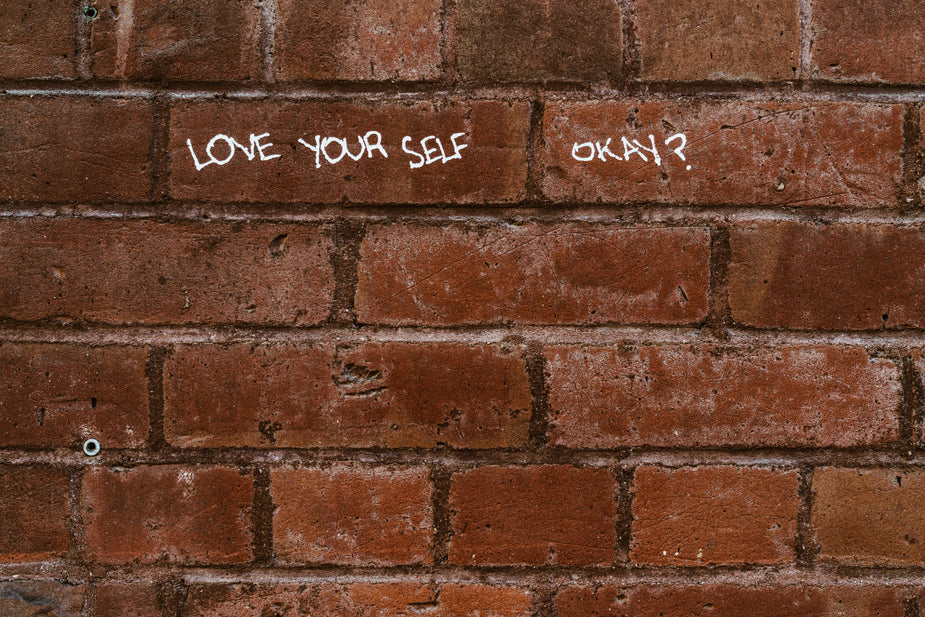 LOVE YOUR SELF OKAY?